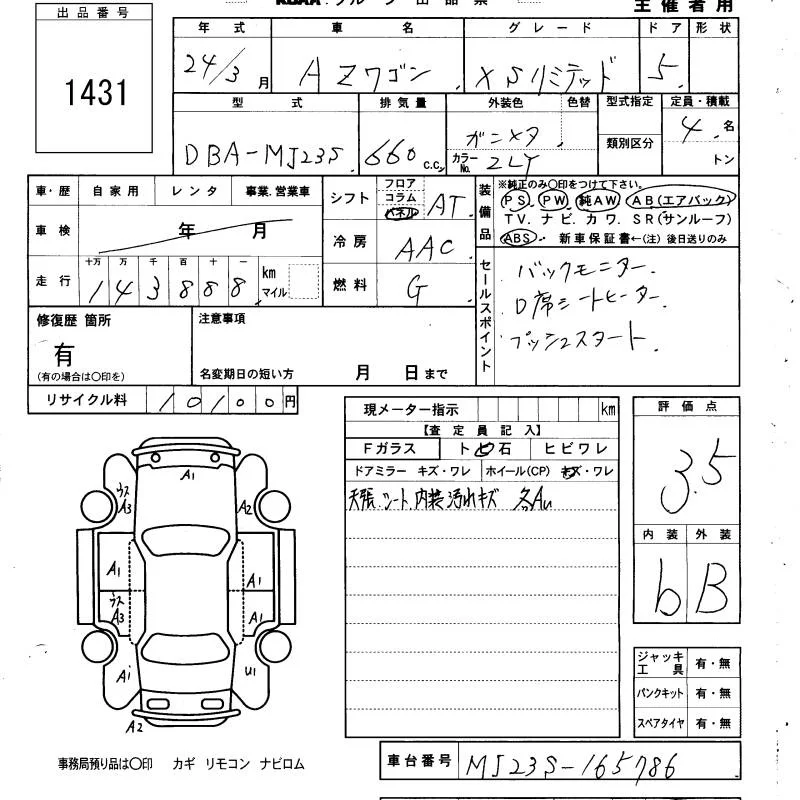 KCAA グループ 出品票
主催者用
出品番号
1431
年式 車名 グレード ドア 形状
24/3月 AZワゴン XSリミテッド 5
型式 排気量 外装色 色替 型式指定 定員・積載
DBA-MJ23S 660 c.c. ガンメタ カラーNo. ZLY 類別区分 4名
トン
車・歴 自家用 レンタ 事業.営業車
車検 年 月
走行 十万 万 千 百 十 一 km マイル
143888
シフト フロア コラム パネル AT
冷房 AAC
燃料 G
装備品 ※純正のみ○印をつけて下さい。
PS. PW. 純AW. AB(エアバック)
TV. ナビ. カワ. SR(サンルーフ)
ABS. 新車保証書←(注) 後日送りのみ
セールスポイント
バックモニター.
D席シートヒーター.
プッシュスタート.
修復歴 箇所
有
(有の場合は○印を)
注意事項
名変期日の短い方 月 日まで
リサイクル料 10100円
現メーター指示 km
【査定員記入】
Fガラス トビ石 ヒビワレ
ドアミラー キズ・ワレ ホイール(CP) キズ・ワレ
天張.シート.内装汚れキズ 各Au
評価点
3.5
内装 外装
b B
A1
ウス A3 A2
A1 A1
ウス A3 A1
A1 U1
A2
ジャッキ工具 有・無
パンクキット 有・無
スペアタイヤ 有・無
事務局預り品は○印 カギ リモコン ナビロム
車台番号 MJ23S-165786